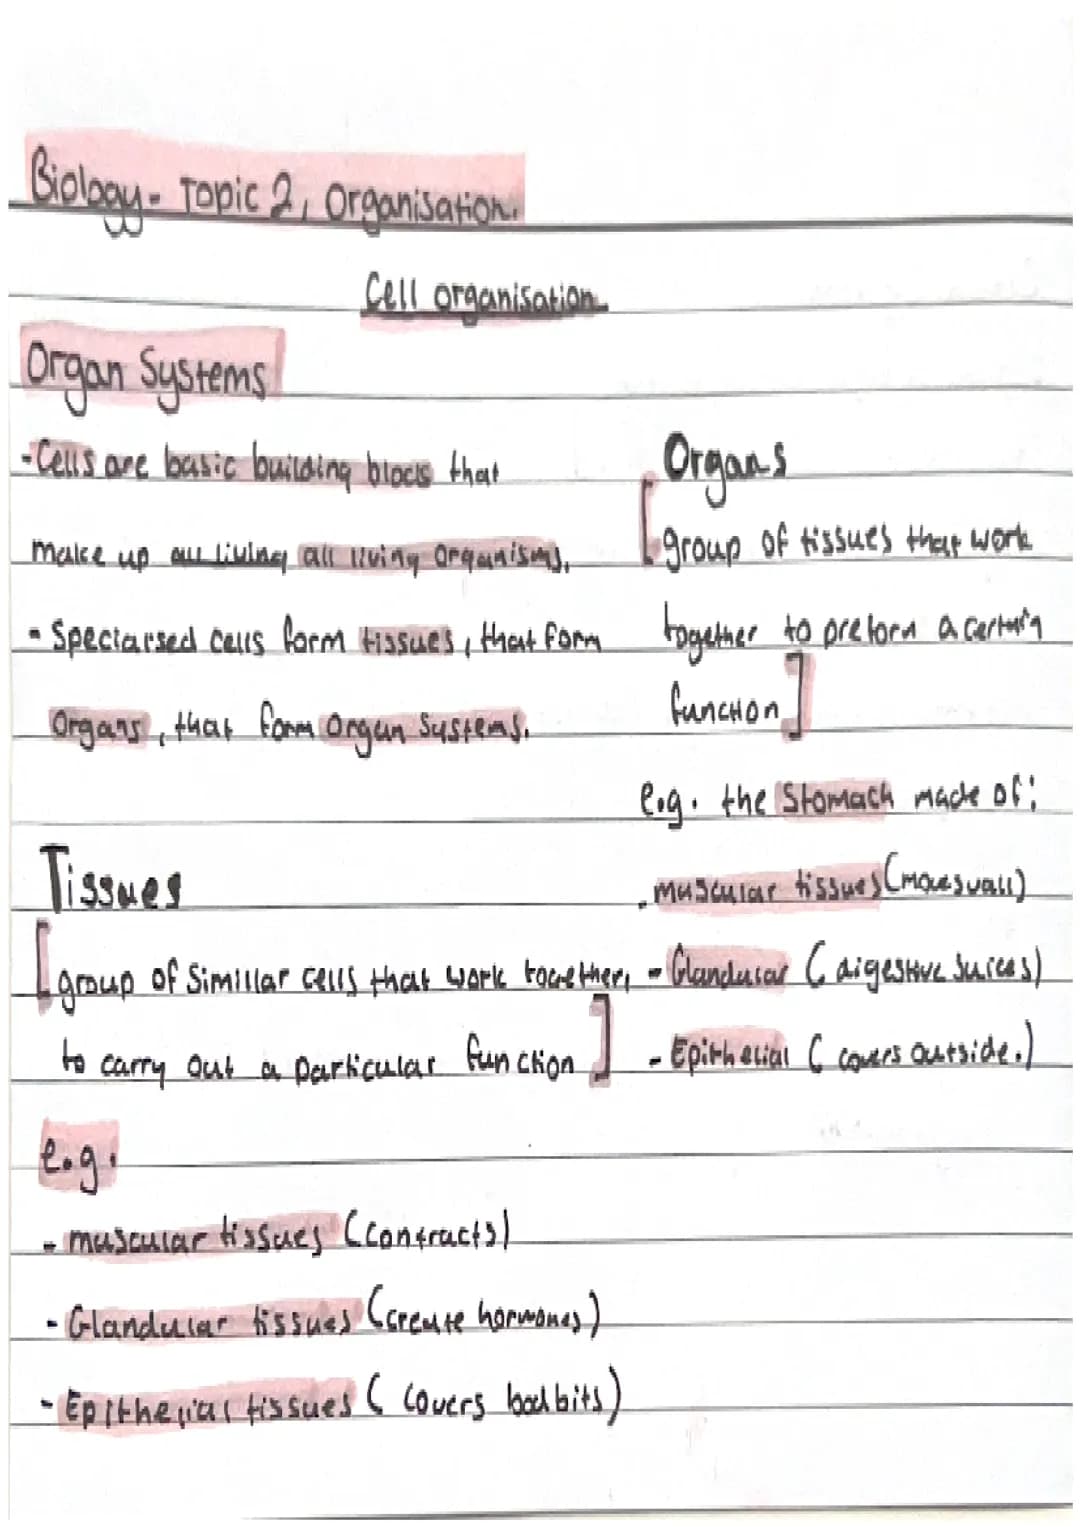 Biology - Topic 2, Organisation.
Cell organisation
Organ Systems
- Cells are basic building blocks that
make up all living all living organisms.
- Speciarsed cells form tissues, that form
Organs, that form Organ Systems.
Tissues
[group of Simillar cells that work together,
to carry out a particular function]
e.g.
- muscular tissues (contracts)
- Glandular tissues (create hormones)
- Epithelial tissues (covers bod bits)
Organs
[group of tissues that work
together to preform a certain
function]
e.g. the Stomach made of:
- muscular tissues (moves wall)
- Glandular (digestive Juices)
- Epithelial (covers outside.)